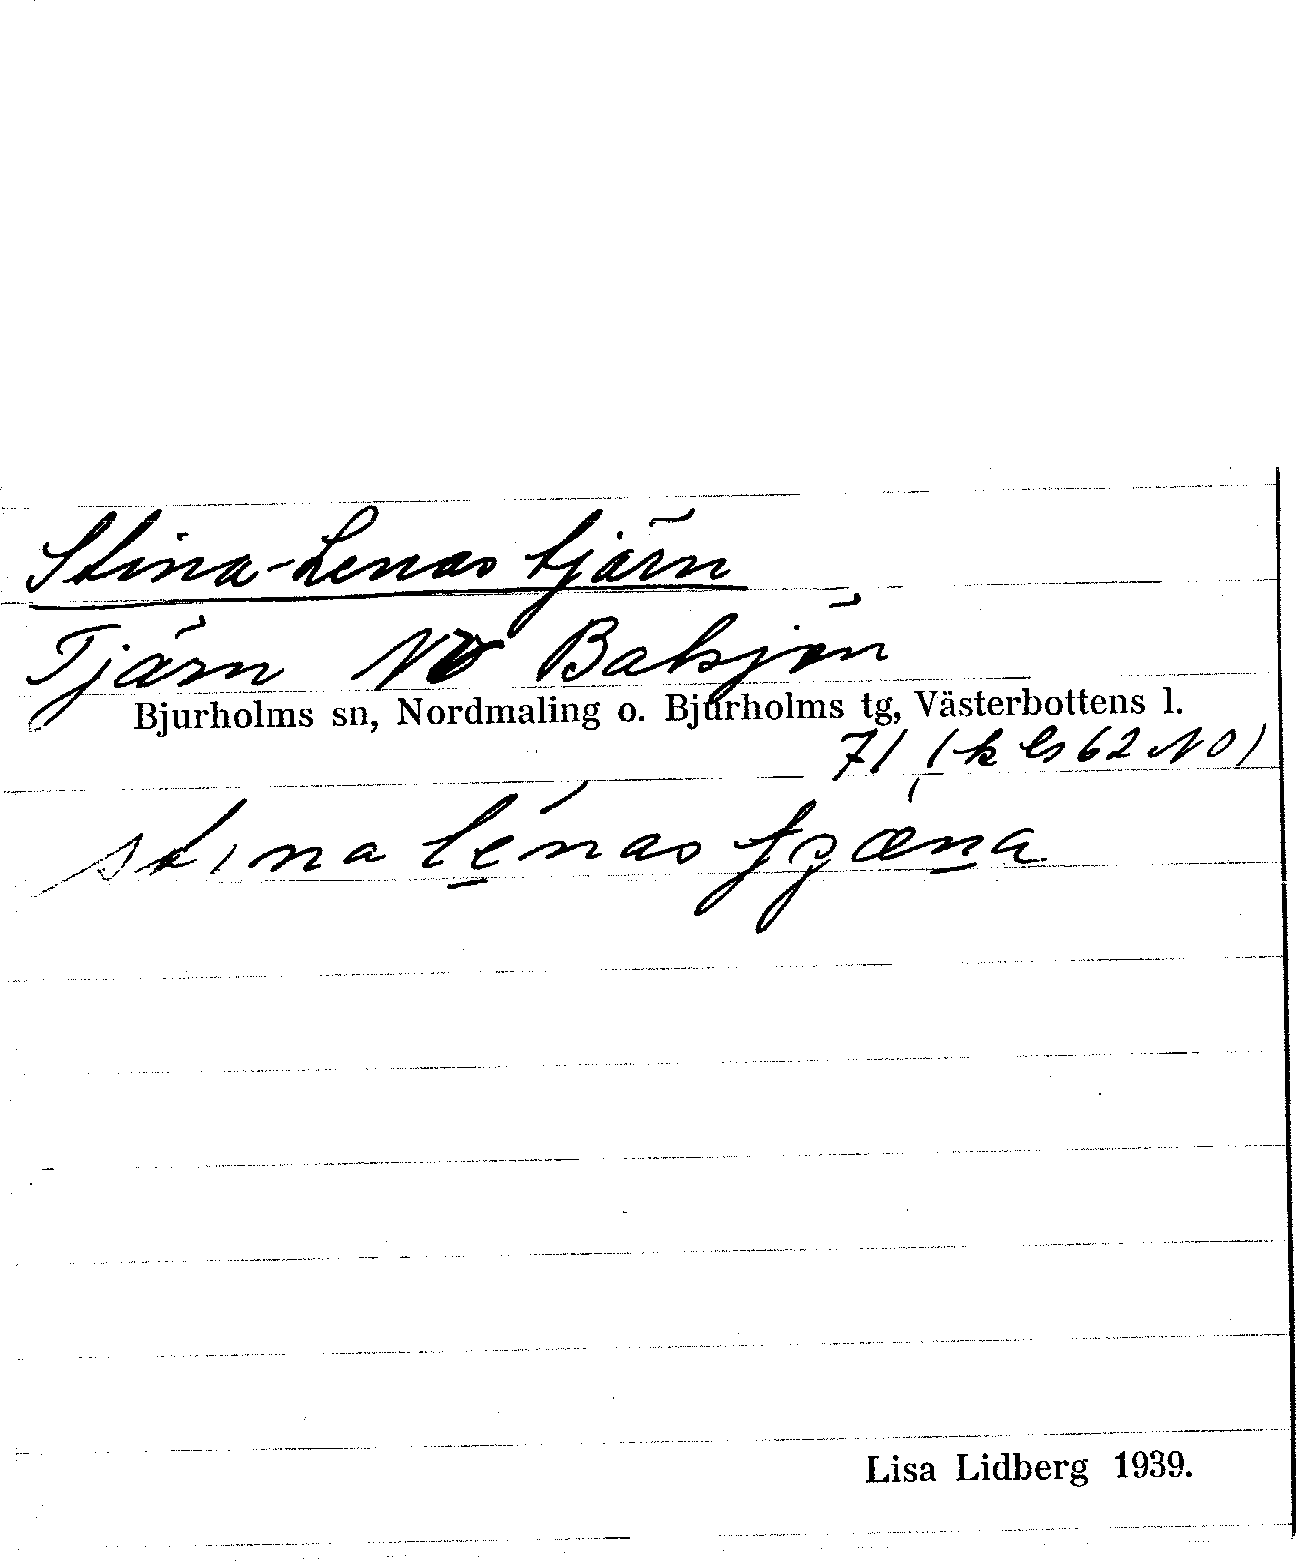 Stina-Lenas tjärn
Tjärn NO Baksjön
Bjurholms sn, Nordmaling o. Bjurholms tg, Västerbottens l.
71 (k bs 62 NO)
stina lénas tjæṉa
Lisa Lidberg 1939.